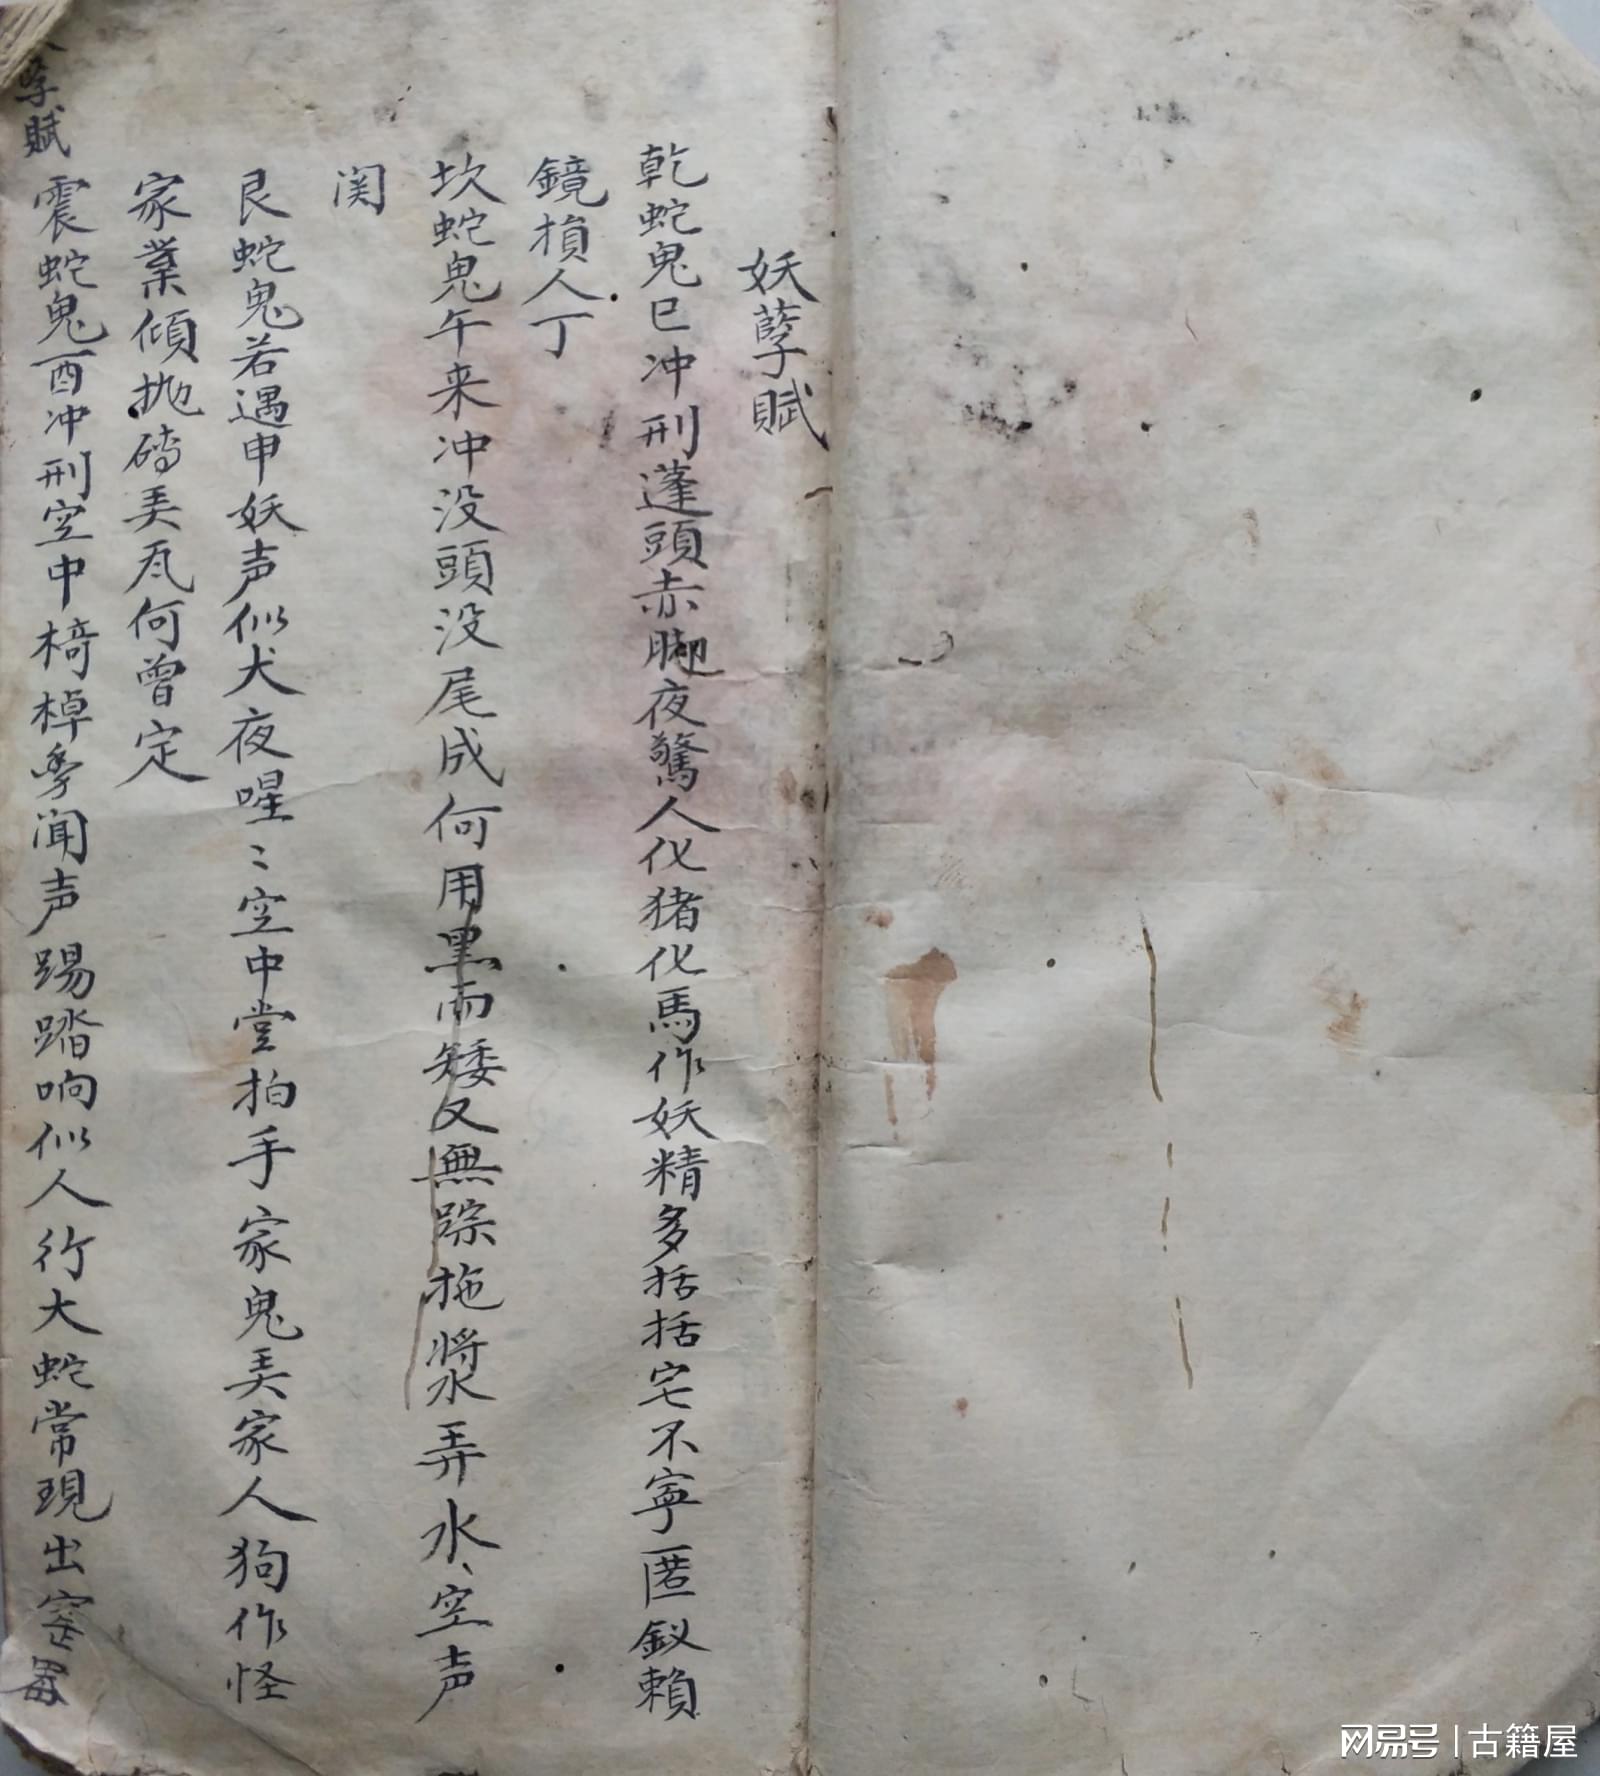 妖孽賦
乾蛇鬼巳冲刑蓬頭赤腳夜驚人化猪化馬作妖精多括括宅不寧匿釵賴
鏡損人丁
坎蛇鬼午来冲没頭没尾成何用黑而矮又無踪拖漿弄水空声
関
艮蛇鬼若遇申妖声似犬夜喤〻空中堂拍手家鬼美家人狗作怪
家業傾抛磚美瓦何曾定
震蛇鬼酉冲刑空中椅棹學闻声踢踏响似人行大蛇常現出
孽賦
网易号 | 古籍屋